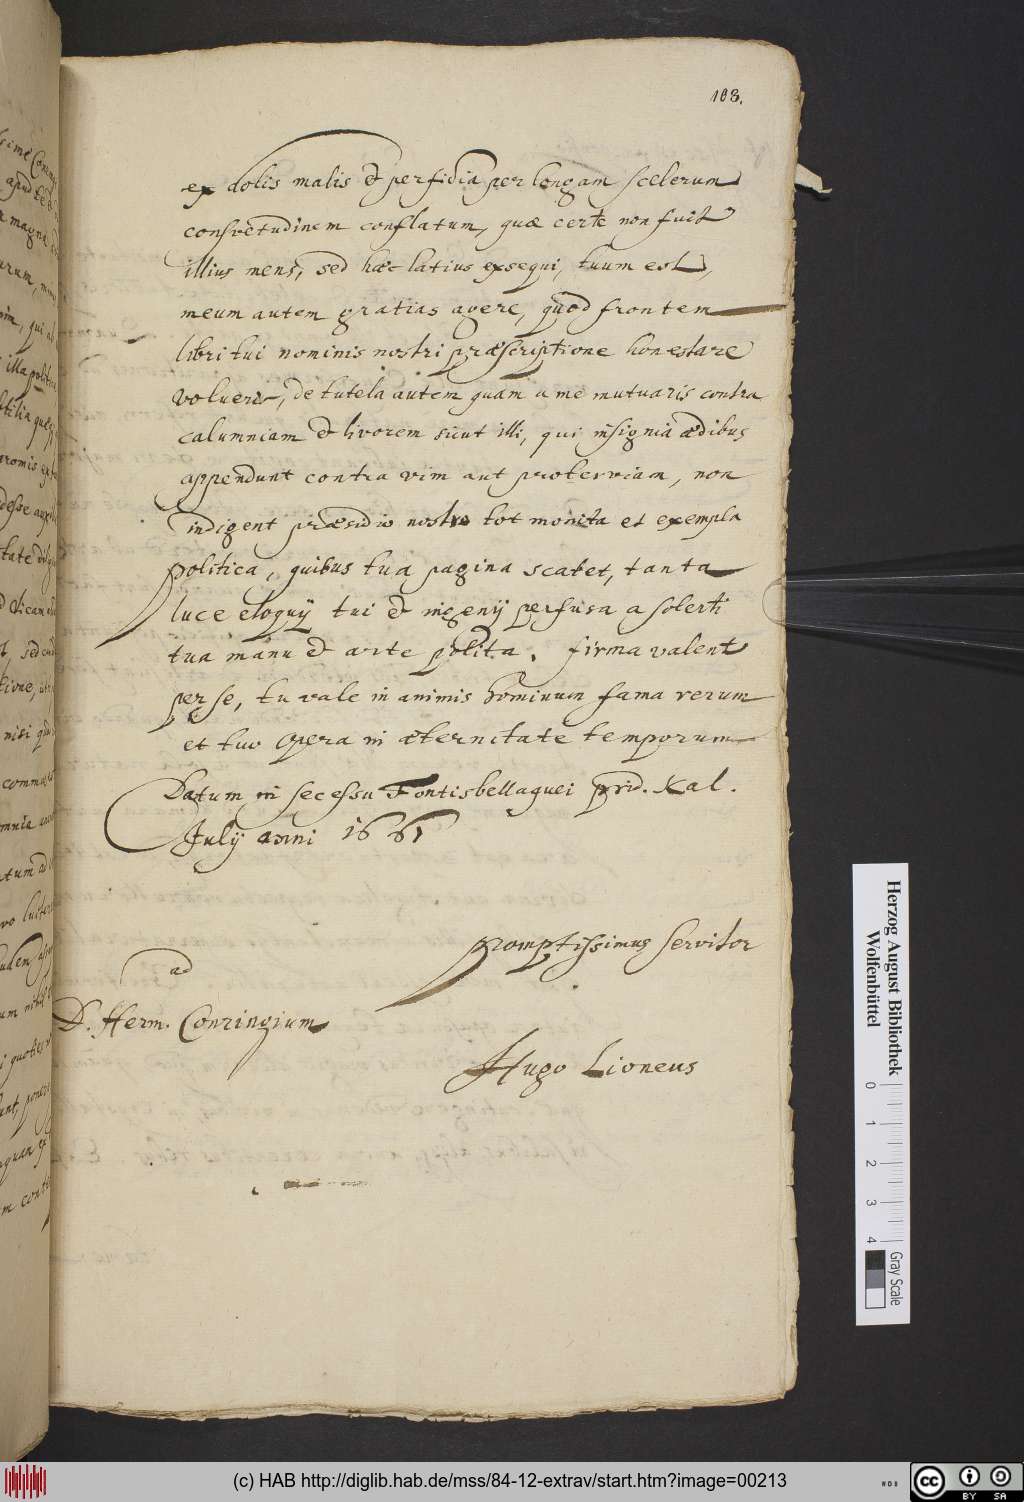 108.
ex dolis malis et perfidia per longam scelerum
consvetudinem conflatum, quæ certe non fuit
illius mens, sed hæc latius exsequi, tuum est,
meum autem gratias agere, quod frontem
libri tui nominis nostri præscriptione honestare
volueris, de tutela autem quam a me mutuaris contra
calumniam et livorem sicut illi, qui insignia ædibus
appendunt contra vim aut proterviam, non
indigent præsidio nostro tot monita et exempla
politica, quibus tua pagina scatet, tanta
luce eloquij tui et ingenij perfusa a solerti
tua manu et arte polita. firma valent
per se, tu vale in animis hominum fama rerum
et tuo opera in æternitate temporum
Datum in secessu Fontisbellaquei prid. Kal.
Julij anni 1661
promptissimus servitor
ad
D. Herm. Conringium
Hugo Lioneus
Herzog August Bibliothek
Wolfenbüttel
0 1 2 3 4
Gray Scale
(c) HAB http://diglib.hab.de/mss/84-12-extrav/start.htm?image=00213
cc BY SA